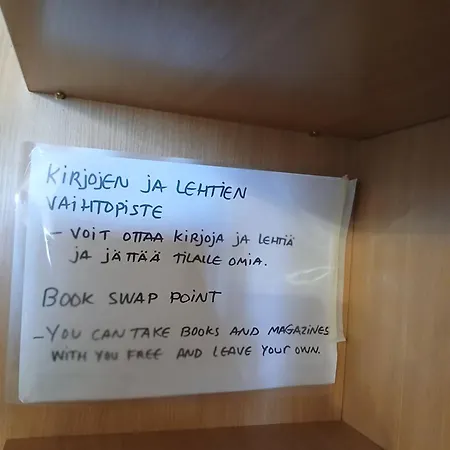 KIRJOJEN JA LEHTIEN
VAIHTOPISTE
- VOIT OTTAA KIRJOJA JA LEHTIÄ
JA JÄTTÄÄ TILALLE OMIA.
BOOK SWAP POINT
- YOU CAN TAKE BOOKS AND MAGAZINES
WITH YOU FREE AND LEAVE YOUR OWN.